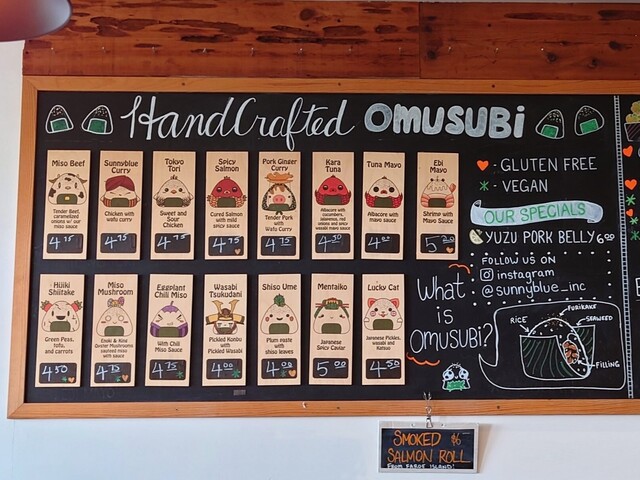 HandCrafted OMUSUBi
Miso Beef
Tender Beef,
caramelized
onions w/ our
miso sauce
4.75
Sunnyblue
Curry
Chicken with
wafu curry
4.75
Tokyo
Tori
Sweet and
Sour
Chicken
4.75
Spicy
Salmon
Cured Salmon
with mild
spicy sauce
4.75
Pork Ginger
Curry
Tender Pork
with
Wafu Curry
4.75
Kara
Tuna
Albacore with
cucumbers,
jalapenos, red
onions and spicy
wasabi mayo sauce
4.50
Tuna Mayo
Albacore with
mayo sauce
Ebi
Mayo
Shrimp with
Mayo Sauce
Hijiki
Shiitake
Green Peas,
tofu,
and carrots
4.50
Miso
Mushroom
Enoki & King
Oyster Mushrooms
sauteed miso
with sauce
4.75
Eggplant
Chili Miso
With Chili
Miso Sauce
4.75
Wasabi
Tsukudani
Pickled Konbu
with
Pickled Wasabi
4.00
Shiso Ume
Plum paste
with
shiso leaves
4.00
Mentaiko
Japanese
Spicy Caviar
5.00
Lucky Cat
Japanese Pickles,
wasabi and
Katsuo
4.50
- GLUTEN FREE
- VEGAN
OUR SPECIALS
YUZU PORK BELLY 6.00
FOLLOW US ON
instagram
@sunnyblue_inc
What
is
OMUSUBi?
FURIKAKE
RICE
SEAWEED
FILLING
SMOKED $6
SALMON ROLL
FROM FAROE ISLAND!